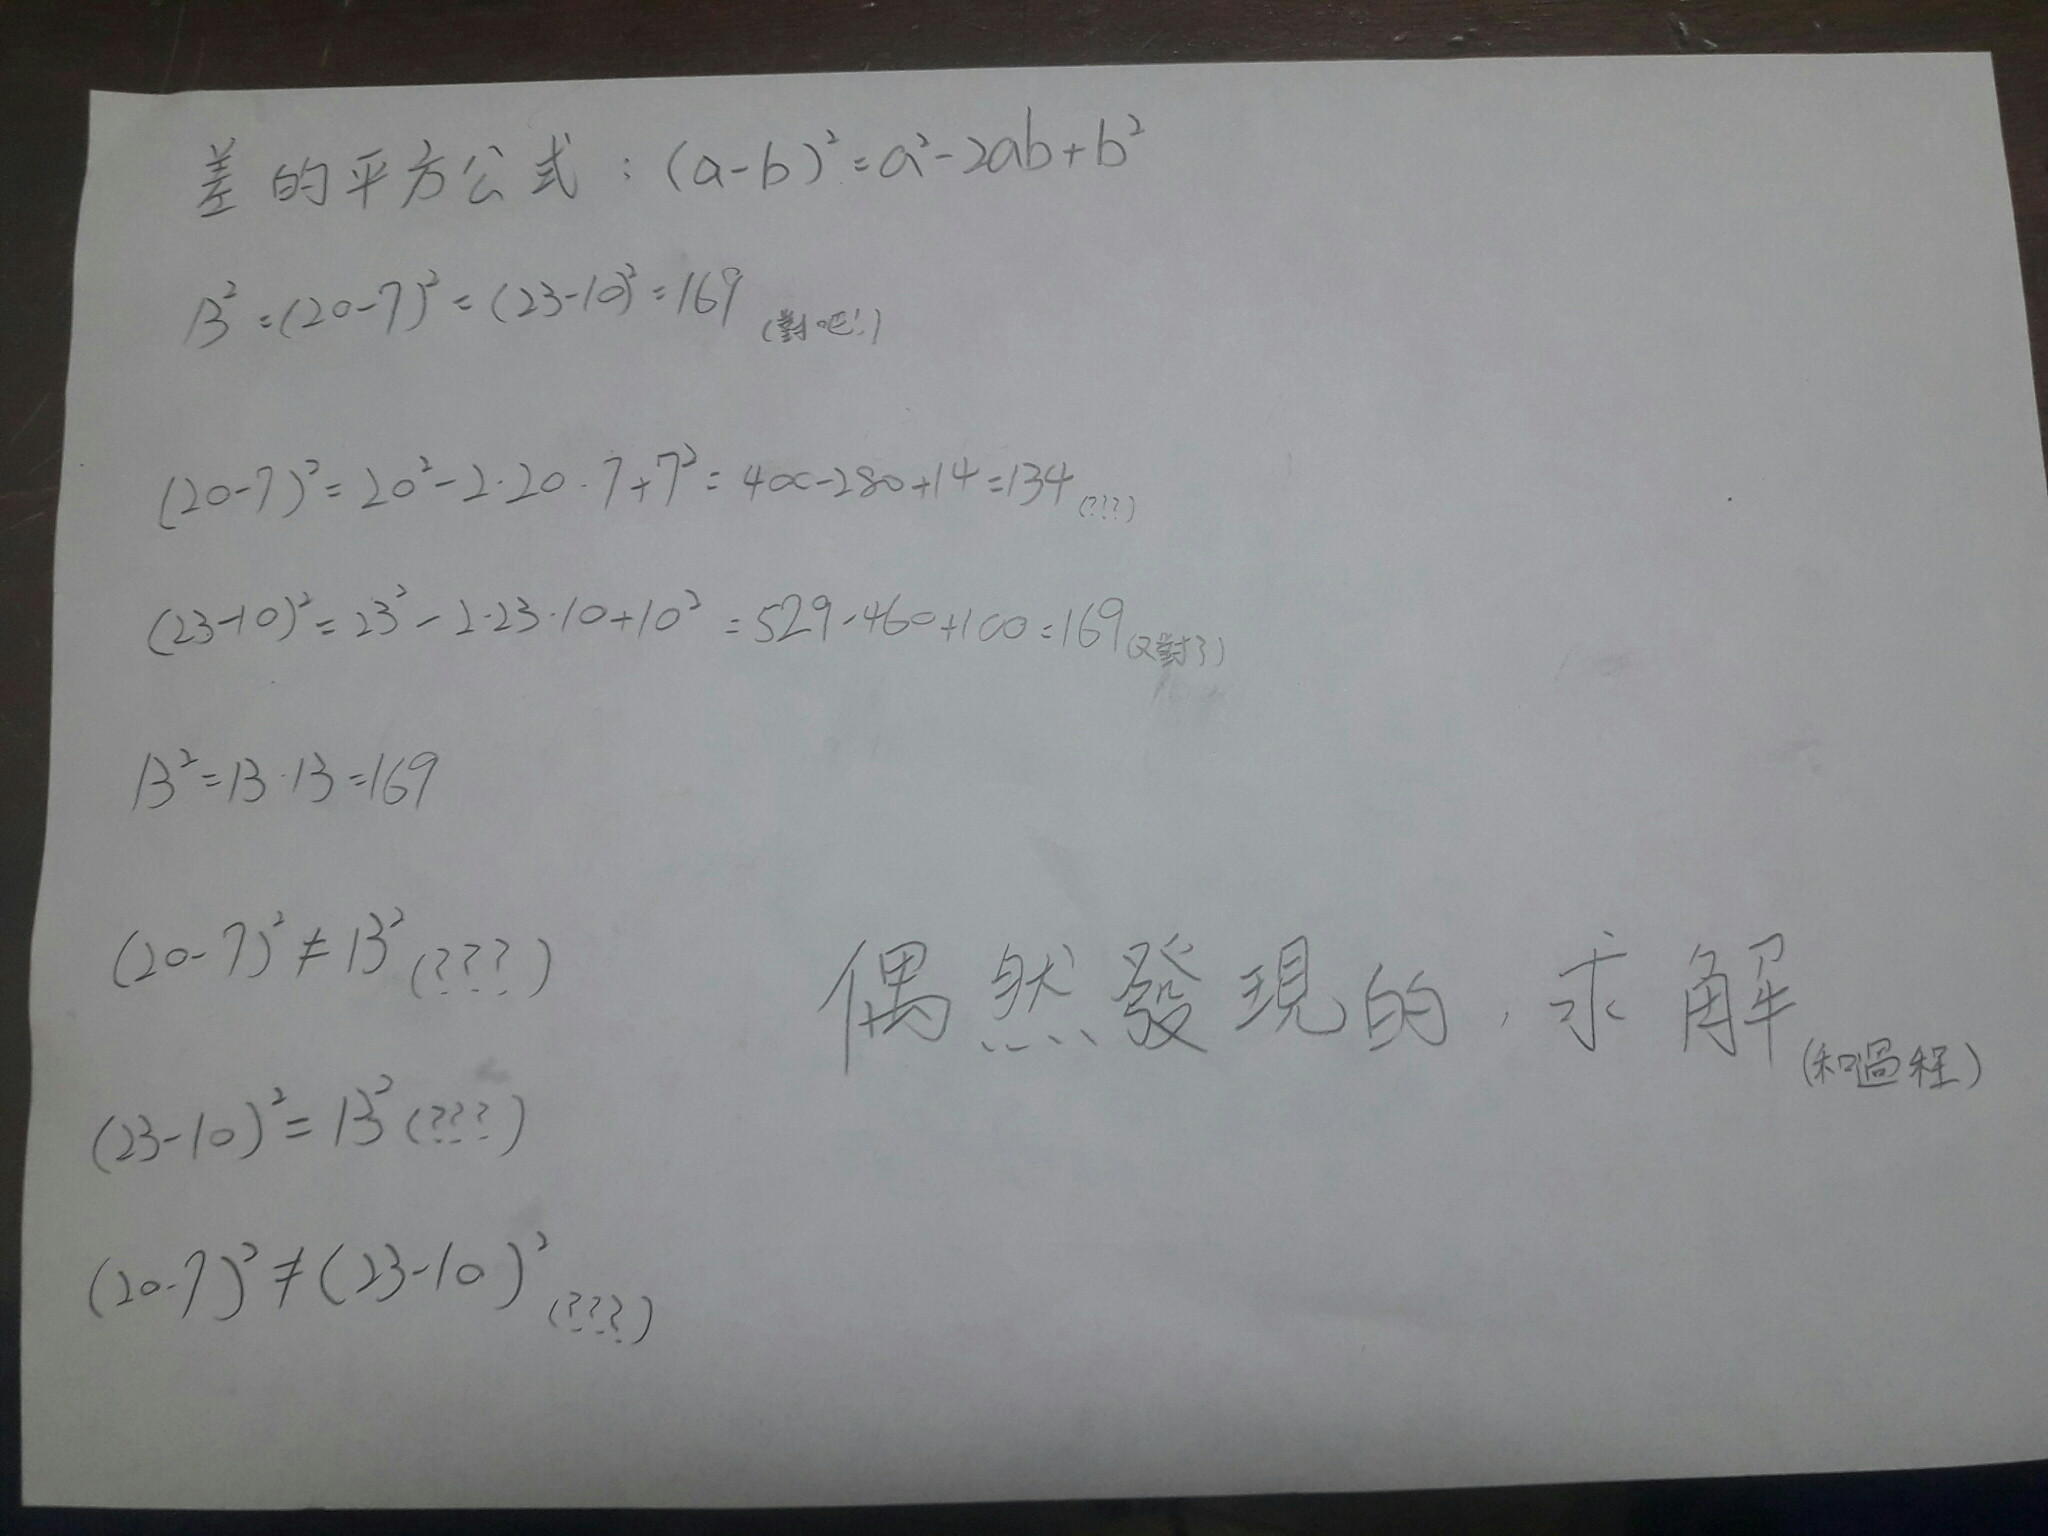 差的平方公式：(a-b)²=a²-2ab+b²
13²=(20-7)²=(23-10)²=169 (對吧!)
(20-7)²=20²-2·20·7+7²=400-280+14=134 (???)
(23-10)²=23²-2·23·10+10²=529-460+100=169 (又對了)
13²=13·13=169
(20-7)²≠13² (???)
(23-10)²=13² (???)
(20-7)²≠(23-10)² (???)
偶然發現的，求解(和過程)